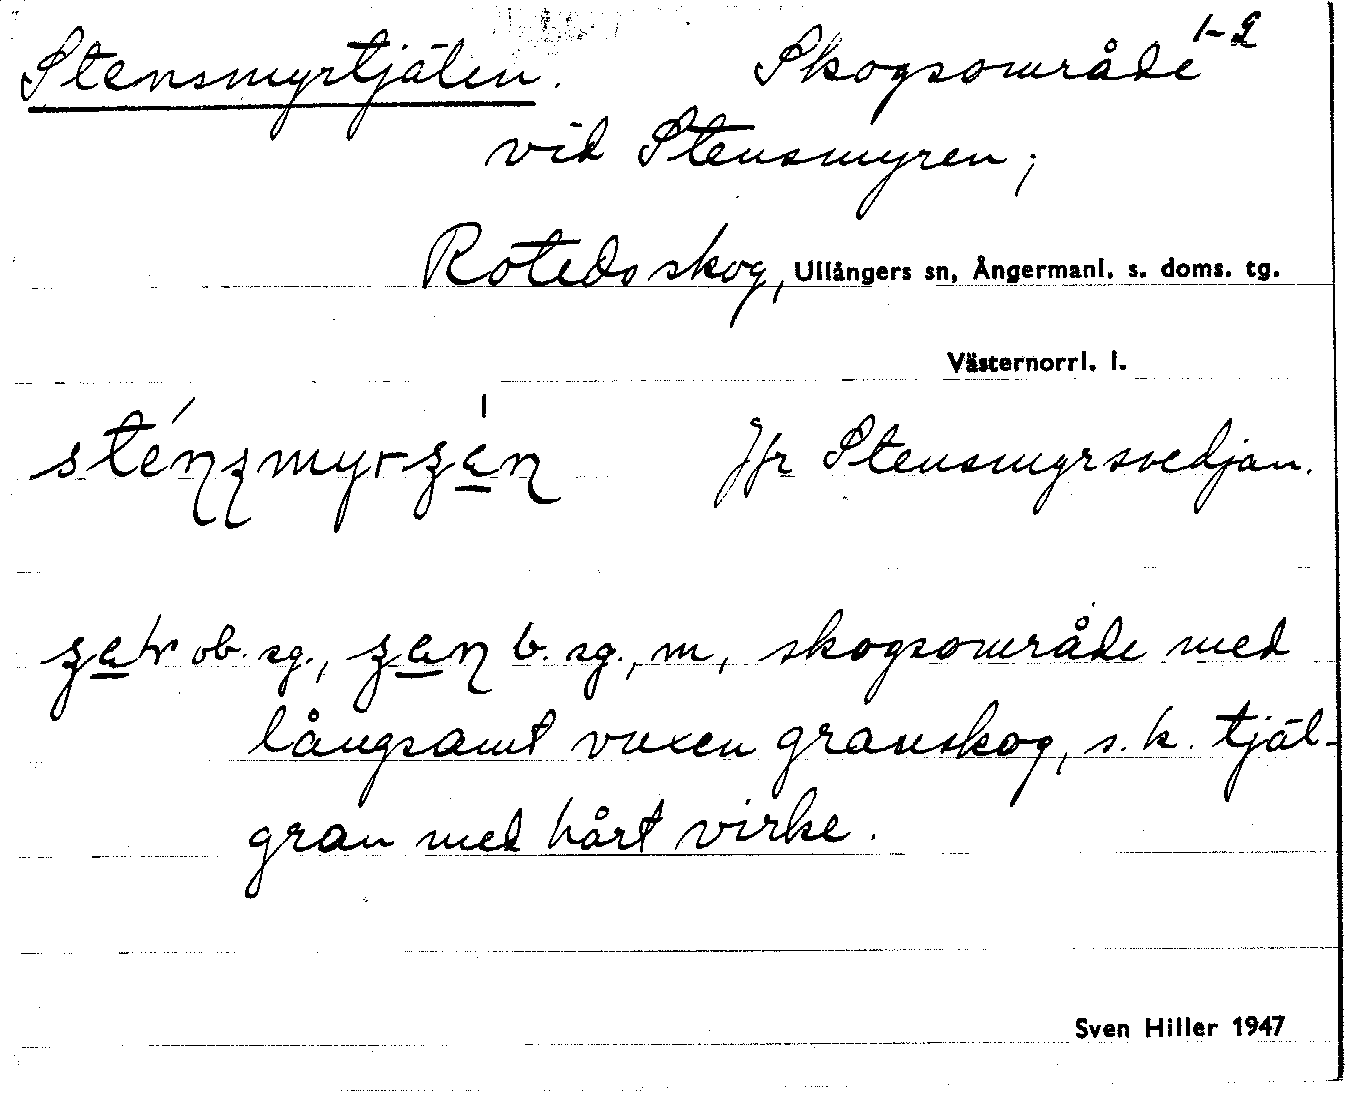 Stensmyrtjälen. Skogsområde 1-2
vid Stensmyren;
Roteds skog, Ullångers sn, Ångermanl. s. doms. tg.
Västernorrl. l.
Jfr Stensmyrsvedjan.
ob. sg., b. sg., m, skogsområde med
långsamt vuxen granskog, s. k. tjäl-
gran med hårt virke.
Sven Hiller 1947